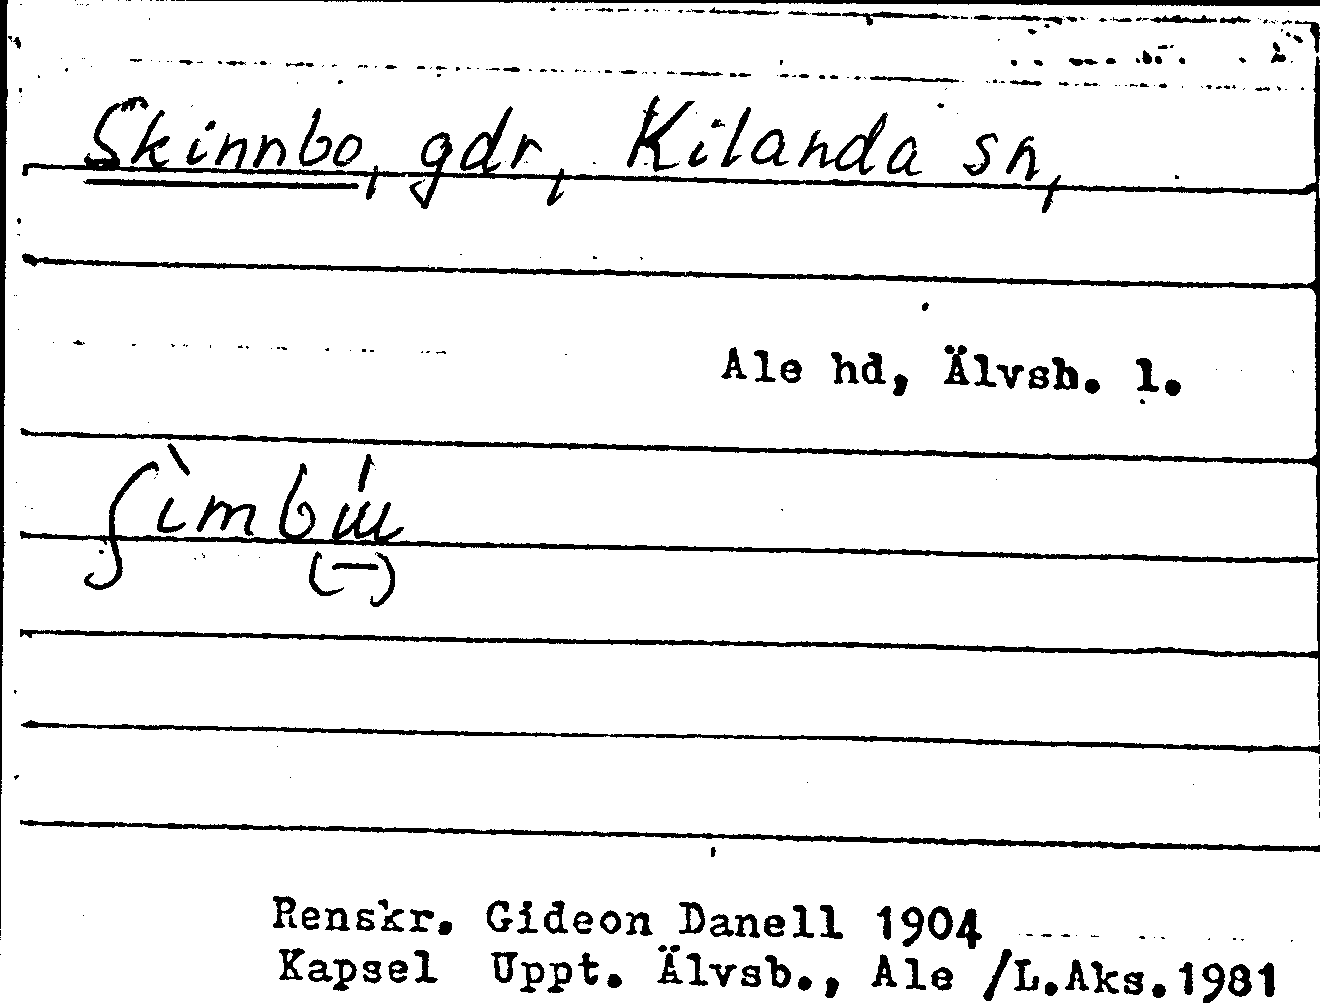 Skinnbo, gdr, Kilanda sn,
Ale hd, Älvsb. l.
ʃìmbɯ́
(—)
Renskr. Gideon Danell 1904
Kapsel Uppt. Älvsb., Ale /L.Aks.1981